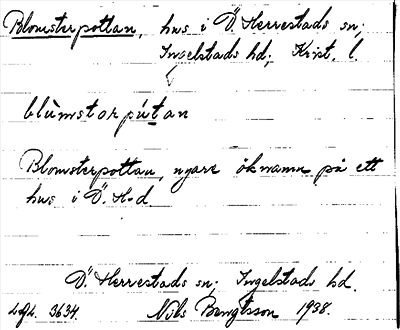 Blomsterpottan, hus i Ö. Herrestads sn;
Ingelstads hd; Krist. l.
blùmstarpútan
Blomsterpottan, nyare öknamn på ett
hus i Ö. H-d
Ö. Herrestads sn; Ingelstads hd.
3634. Nils Bengtsson 1938.